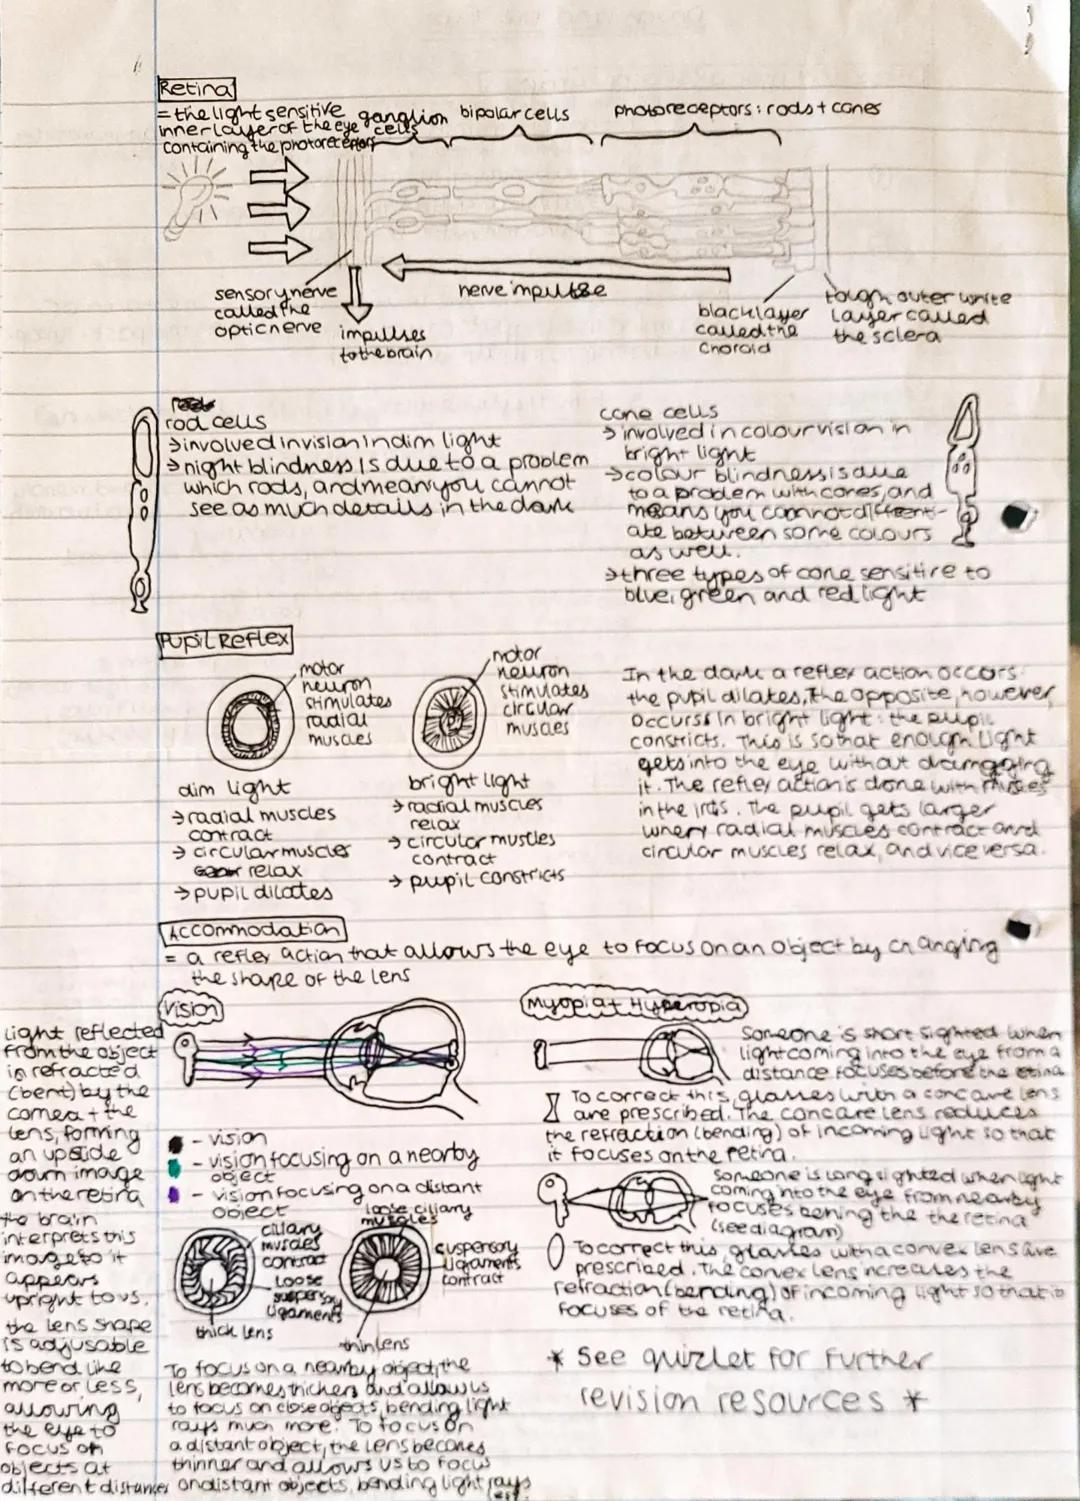 Retina
= the light sensitive
inner layer of the eye
containing the photoreceptors
ganglion
cells
bipolar cells
photoreceptors: rods + cones
sensory nerve
called the
optic nerve
impulses
to the brain
nerve impulse
black layer
called the
choroid
tough outer white
layer called
the sclera
rod cells
→ involved in vision in dim light
→ night blindness is due to a problem
which rods, and means you cannot
see as much details in the dark
cone cells
→ involved in colour vision in
bright light
→ colour blindness is due
to a problem with cones, and
means you cannot different-
ate between some colours
as well.
→ three types of cone sensitive to
blue, green and red light
Pupil Reflex
motor
neuron
stimulates
radial
muscles
dim light
→ radial muscles
contract
→ circular muscles
relax
→ pupil dilates
motor
neuron
stimulates
circular
muscles
bright light
→ radial muscles
relax
→ circular muscles
contract
→ pupil constricts
In the dark a reflex action occurs:
the pupil dilates, The opposite, however,
occurs in bright light: the pupil
constricts. This is so that enough light
gets into the eye without damaging
it. The reflex action is done with muscles
in the iris. The pupil gets larger
when radial muscles contract and
circular muscles relax, and vice versa.
Accommodation
= a reflex action that allows the eye to focus on an object by changing
the shape of the lens
Vision
light reflected
from the object
is refracted
(bent) by the
cornea + the
lens, forming
an upside
down image
on the retina
the brain
interprets this
image so it
appears
upright to us.
the lens shape
is adjustable
to bend like
more or less,
allowing
the eye to
focus on
objects at
different distances
- vision
- vision focusing on a nearby
object
- vision focusing on a distant
object
ciliary
muscles
contract
loose
suspensory
ligaments
thick lens
loose ciliary
muscles
suspensory
ligaments
contract
thin lens
To focus on a nearby object, the
lens becomes thickers and allows us
to focus on close objects, bending light
rays much more. To focus on
a distant object, the lens becomes
thinner and allows us to focus
on distant objects, bending light rays
Myopia + Hyperopia
Someone is short sighted when
light coming into the eye from a
distance focuses before the retina
To correct this, glasses with a concave lens
are prescribed. The concave lens reduces
the refraction (bending) of incoming light so that
it focuses on the retina.
Someone is long sighted when light
coming into the eye from nearby
focuses behing the the retina
(see diagram)
To correct this, glasses with a convex lens are
prescribed. The convex lens increases the
refraction (bending) of incoming light so that it
focuses of the retina.
* See quizlet for further
revision resources *